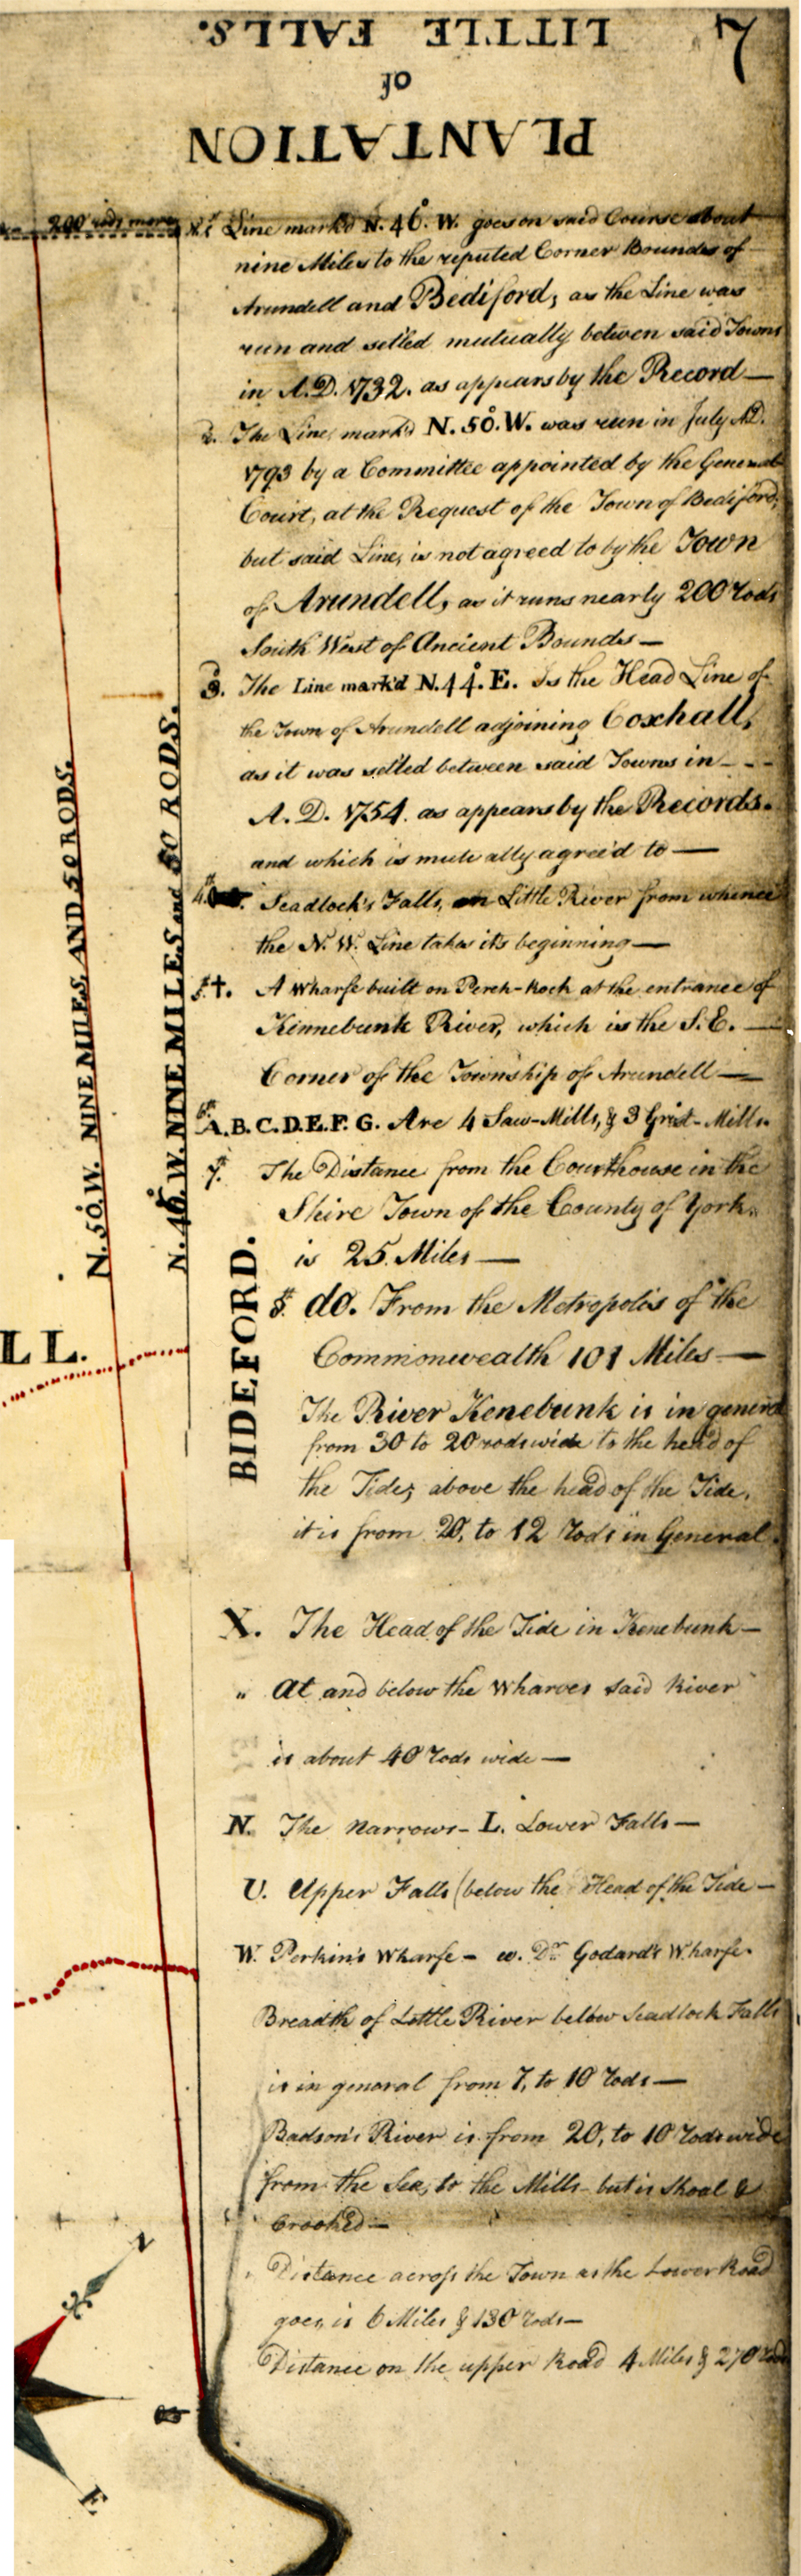 PLANTATION
of
LITTLE FALLS.
7
200 rods more
1st Line mark'd N. 46°. W. goes on said Course about
nine Miles to the reputed Corner Boundes of
Arundell and Bediford, as the Line was
run and setled mutually betwen said Towns
in A.D. 1732. as appears by the Record—
2. The Line, mark'd N. 50°. W. was run in July A.D.
1793 by a Committee appointed by the General
Court, at the Request of the Town of Bediford,
but said Line, is not agreed to by the Town
of Arundell, as it runs nearly 200 rods
South West of Ancient Bounds—
3. The Line mark'd N. 44°. E. Is the Head Line of
the Town of Arundell adjoining Coxhall,
as it was setled between said Towns in - - -
A. D. 1754. as appears by the Records.
and which is mutually agree'd to —
4th. Seadlock's Falls, on Little River from whence
the N. W. Line takes its beginning—
5th †. A Wharfe built on Perch-Rock at the entrance of
Kinnebunk River, which is the S. E. —
Corner of the Township of Arundell —
6th A. B. C. D. E. F. G. Are 4 Saw-Mills, & 3 Grist-Mills.
7th The Distance from the Courthouse in the
Shire Town of the County of York.
is 25 Miles —
8th do. From the Metropolis of the
Commonwealth 101 Miles —
The River Kenebunk is in general
from 30 to 20 rods wide to the head of
the Tide; above the head of the Tide,
it is from 20, to 12 rods in General.
X. The Head of the Tide in Kenebunk—
" At and below the Wharves said River
is about 40 rods wide —
N. The Narrows - L. Lower Falls —
U. Upper Falls (below the Head of the Tide —
W. Perkin's Wharfe - w. Dr Godard's Wharfe.
Breadth of Little River below Seadlock Falls
is in general from 7, to 10 rods —
Badson's River is from 20, to 10 rods wide
from the Sea, to the Mills - but is Shoal &
Crooked —
Distance across the Town as the Lower Road
goes, is 6 Miles & 130 rods—
Distance on the upper Road 4 Miles & 270 rods
N. 50°. W. NINE MILES, AND 50 RODS.
N. 46°. W. NINE MILES and 50 RODS.
BIDEFORD.
LL.
N
E
B